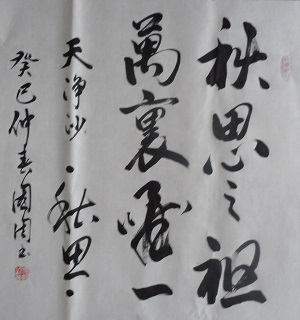 秋思之祖
萬裏唯一
天净沙·秋思·
癸巳仲春国周书